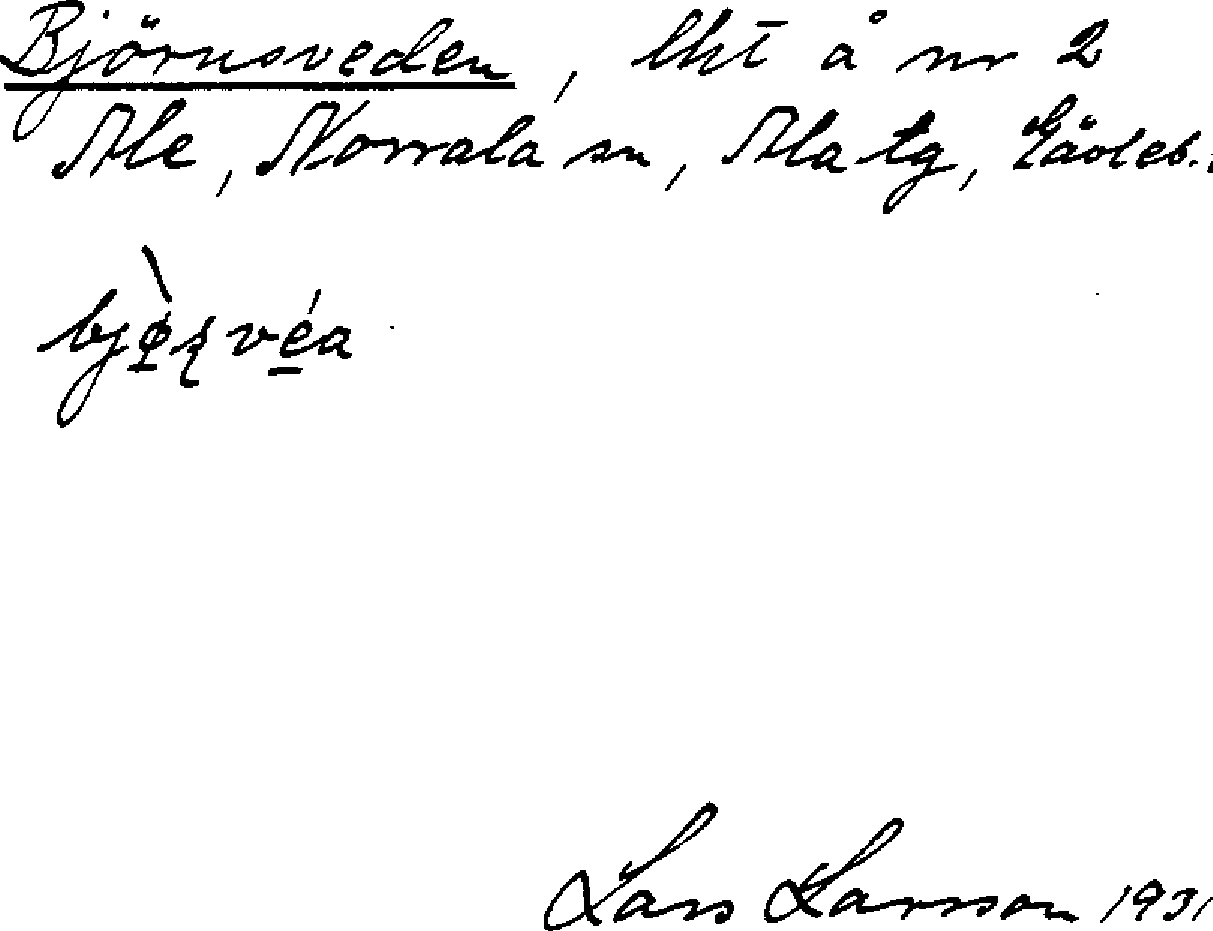 Björnsveden, lht å nr 2
Ale, Norrala sn, Ala tg, Gävleb.
Lars Larsson 1931